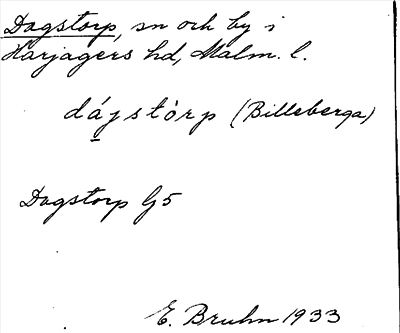 Dagstorp, sn och by i
Harjagers hd, Malm. l.
dájstòrp (Billeberga)
Dagstorp G5
E. Bruhn 1933